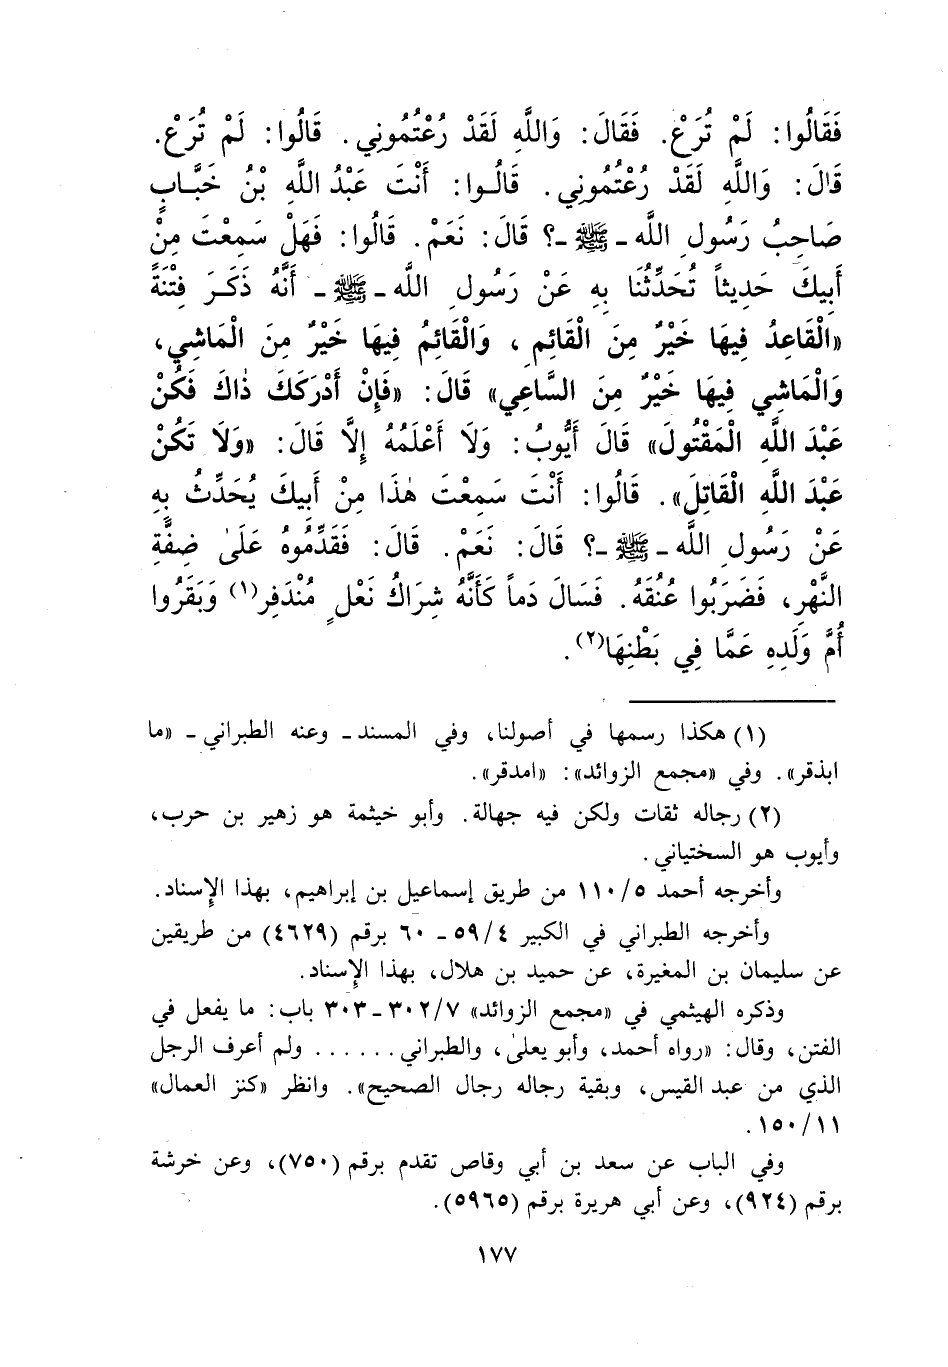 فَقَالُوا: لَمْ تُرَعْ. فَقَالَ: وَاللَّهِ لَقَدْ رُعْتُمُونِي. قَالُوا: لَمْ تُرَعْ.
قَالَ: وَاللَّهِ لَقَدْ رُعْتُمُونِي. قَالُـوا: أَنْتَ عَبْدُ اللَّهِ بْنُ خَبَّـابٍ
صَاحِبُ رَسُولِ اللَّه ـ ﷺ ـ؟ قَالَ: نَعَمْ. قَالُوا: فَهَلْ سَمِعْتَ مِنْ
أَبِيكَ حَدِيثاً تُحَدِّثُنَا بِهِ عَنْ رَسُولِ اللَّه ـ ﷺ ـ أَنَّهُ ذَكَـرَ فِتْنَةً
«الْقَاعِدُ فِيهَا خَيْرٌ مِنَ الْقَائِمِ، وَالْقَائِمُ فِيهَا خَيْرٌ مِنَ الْمَاشِي،
وَالْمَاشِي فِيهَا خَيْرٌ مِنَ السَّاعِي» قَالَ: «فَإِنْ أَدْرَكَكَ ذَاكَ فَكُنْ
عَبْدَ اللَّهِ الْمَقْتُولَ» قَالَ أَيُّوبُ: وَلَا أَعْلَمُهُ إِلَّا قَالَ: «وَلَا تَكُنْ
عَبْدَ اللَّهِ الْقَاتِلَ». قَالُوا: أَنْتَ سَمِعْتَ هٰذَا مِنْ أَبِيكَ يُحَدِّثُ بِهِ
عَنْ رَسُولِ اللَّه ـ ﷺ ـ؟ قَالَ: نَعَمْ. قَالَ: فَقَدَّمُوهُ عَلَىٰ ضِفَّةِ
النَّهْرِ، فَضَرَبُوا عُنُقَهُ. فَسَالَ دَماً كَأَنَّهُ شِرَاكُ نَعْلٍ مُنْدَفِرٍ(١) وَبَقَرُوا
أُمَّ وَلَدِهِ عَمَّا فِي بَطْنِهَا(٢).
(١) هكذا رسمها في أصولنا، وفي المسند ـ وعنه الطبراني ـ «ما
ابذقر». وفي «مجمع الزوائد»: «امدقر».
(٢) رجاله ثقات ولكن فيه جهالة. وأبو خيثمة هو زهير بن حرب،
وأيوب هو السختياني.
وأخرجه أحمد ١١٠/٥ من طريق إسماعيل بن إبراهيم، بهذا الإسناد.
وأخرجه الطبراني في الكبير ٥٩/٤ ـ ٦٠ برقم (٤٦٢٩) من طريقين
عن سليمان بن المغيرة، عن حميد بن هلال، بهذا الإسناد.
وذكره الهيثمي في «مجمع الزوائد» ٣٠٢/٧ ـ ٣٠٣ باب: ما يفعل في
الفتن، وقال: «رواه أحمد، وأبو يعلىٰ، والطبراني...... ولم أعرف الرجل
الذي من عبد القيس، وبقية رجاله رجال الصحيح». وانظر «كنز العمال»
١٥٠/١١.
وفي الباب عن سعد بن أبي وقاص تقدم برقم (٧٥٠)، وعن خرشة
برقم (٩٢٤)، وعن أبي هريرة برقم (٥٩٦٥).
١٧٧